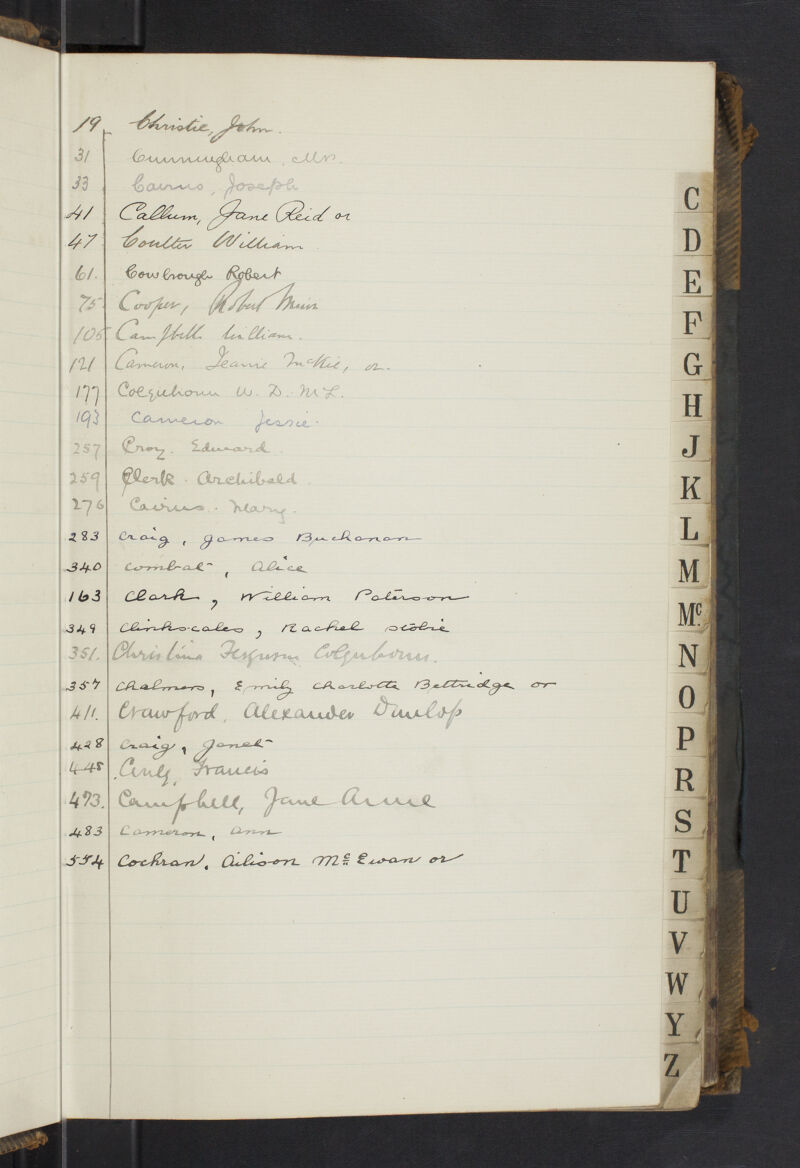 19 Christie, John.
31 Cunningham, Mrs.
33 Cairns, Joseph
41 Callum, Jane Reid or
47 Coulter William
61. Cowbrough Robert
75 Cooper, Robert Muir
105 Campbell William.
121 Cameron, Jeanie McKie, or.
177 Colquhoun W. D. McL.
193 Cameron Jessie.
257 Croy. Edward
259 Clerk. Archibald
276 Cairns. Mary.
283 Craig, James Buchanan
340 Combat, Alice
163 Clark, William Paterson
349 Clinkscales, Rachel Stobie
351. Christina Ferguson Colquhoun.
357 Chalmers, Emily Charlotte Bettridge or
411. Crawford, Alexander Dunlop
428 Craig, Janet
448 Francis
473. Campbell, Jane Anne
483 Cameron, Ann
554 Cochran, Ailison McEwan or
C
D
E
F
G
H
J
K
L
M
Mc
N
O
P
R
S
T
U
V
W
Y
Z